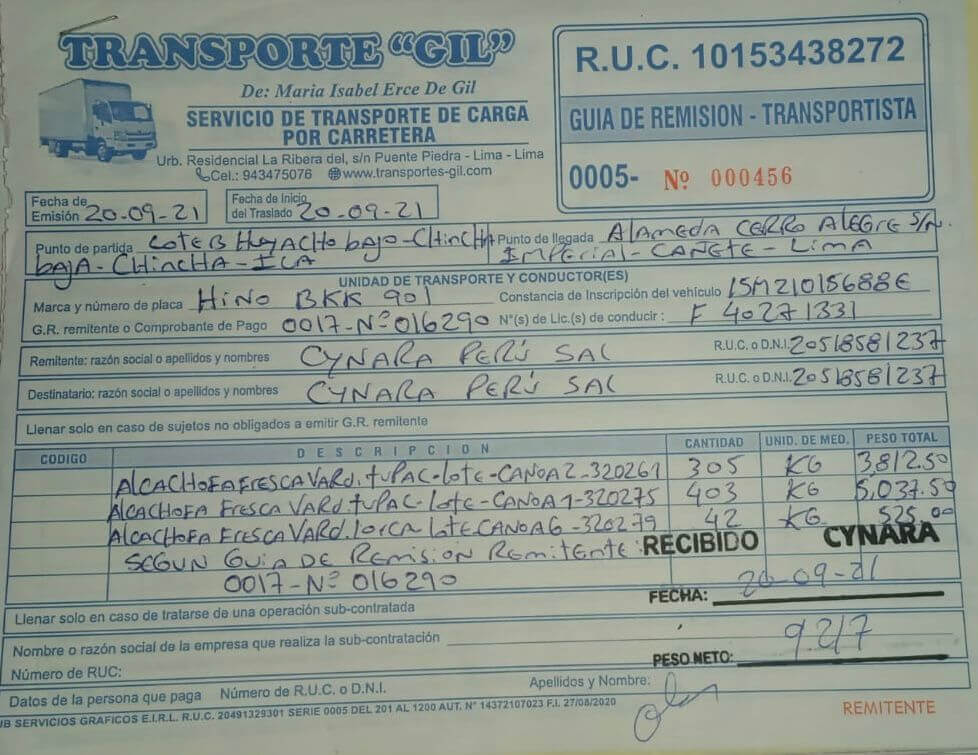 TRANSPORTE "GIL"
De: Maria Isabel Erce De Gil
SERVICIO DE TRANSPORTE DE CARGA
POR CARRETERA
Urb. Residencial La Ribera del, s/n Puente Piedra - Lima - Lima
Cel.: 943475076 www.transportes-gil.com
R.U.C. 10153438272
GUIA DE REMISION - TRANSPORTISTA
0005- Nº 000456
Fecha de Emisión 20-09-21
Fecha de Inicio del Traslado 20-09-21
Punto de partida LOTE B HUYACHO bAJO-CHINCHA
bAJA-CHINCHA-ICA
Punto de llegada ALAMEDA CERRO ALEGRE S/N.
IMPERIAL-CAÑETE-LIMA
UNIDAD DE TRANSPORTE Y CONDUCTOR(ES)
Marca y número de placa HINO BKK 901 Constancia de Inscripción del vehículo 15M21015688E
G.R. remitente o Comprobante de Pago 0017-Nº 016290 N°(s) de Lic.(s) de conducir: F 40271331
Remitente: razón social o apellidos y nombres CYNARA PERÚ SAC R.U.C. o D.N.I. 20518581237
Destinatario: razón social o apellidos y nombres CYNARA PERÚ SAC R.U.C. o D.N.I. 20518581237
Llenar solo en caso de sujetos no obligados a emitir G.R. remitente
CODIGO DESCRIPCION CANTIDAD UNID. DE MED. PESO TOTAL
ALCACHOFA FRESCA VARD. tUPAC-LOtE-CANOA 2-320261 305 KG 3,812.50
ALCACHOFA FRESCA VARD. tUPAC-LOtE-CANOA 1-320275 403 KG 5,037.50
ALCACHOFA FRESCA VARD. LORCA LOTE CANOA 6-320279 42 KG 525.00
SEGUN GUIA DE REMISION REMITENTE:
0017-Nº 016290
RECIBIDO CYNARA
FECHA: 20-09-21
PESO NETO: 9217
Llenar solo en caso de tratarse de una operación sub-contratada
Nombre o razón social de la empresa que realiza la sub-contratación
Número de RUC:
Datos de la persona que paga Número de R.U.C. o D.N.I. Apellidos y Nombre:
UB SERVICIOS GRAFICOS E.I.R.L. R.U.C. 20491329301 SERIE 0005 DEL 201 AL 1200 AUT. N° 14372107023 F.I. 27/08/2020
REMITENTE